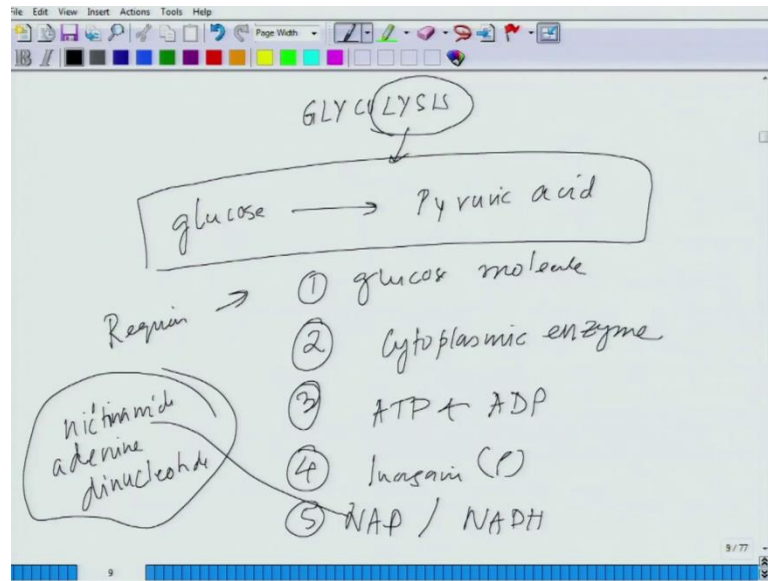 File Edit View Insert Actions Tools Help
Page Width
B I
GLYCOLYSIS
glucose → Pyruvic acid
Requir → ① glucose molecule
② Cytoplasmic enzyme
③ ATP + ADP
④ Inorganic (P)
⑤ NAP / NADH
nictinamide
adenine
dinucleotide
9 / 77
9